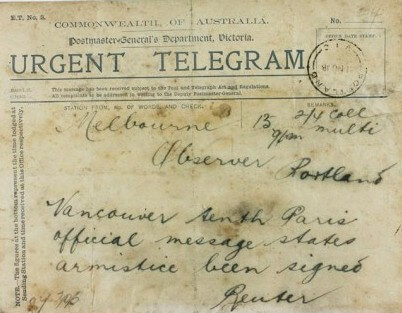 B.T. No. 5.
COMMONWEALTH OF AUSTRALIA.
No.
Postmaster-General's Department, Victoria.
OFFICE DATE STAMP.
URGENT TELEGRAM
PORTLAND
This message has been received subject to the Post and Telegraph Act and Regulations.
All complaints to be addressed in writing to the Deputy Postmaster-General.
STATION FROM, No. OF WORDS AND CHECK.
REMARKS.
Melbourne 15 2/1 Coll
9pm multi
Observer Portland
Vancouver tenth Paris
official message states
armistice been signed
Reuter
NOTE.—The figures at the bottom represent the time lodged at
Sending Station and time received at this Office respectively.